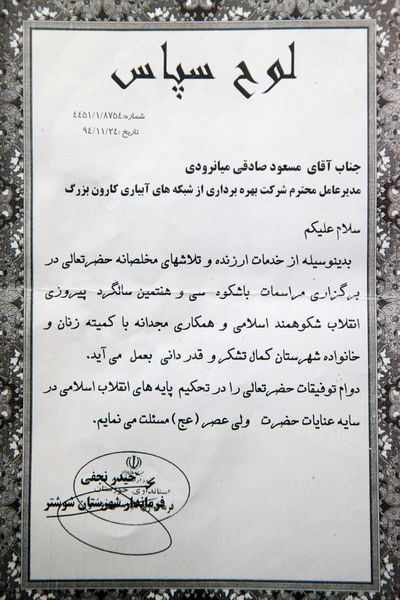 لوح سپاس
شماره: ۴۴۵۱/۱/۸۷۵۴
تاریخ: ۹۴/۱۱/۲۴
جناب آقای مسعود صادقی میانرودی
مدیرعامل محترم شرکت بهره برداری از شبکه های آبیاری کارون بزرگ
سلام علیکم
بدینوسیله از خدمات ارزنده و تلاشهای مخلصانه حضرتعالی در
برگزاری مراسمات باشکوه سی و هفتمین سالگرد پیروزی
انقلاب شکوهمند اسلامی و همکاری مجدانه با کمیته زنان و
خانواده شهرستان کمال تشکر و قدردانی بعمل می آید.
دوام توفیقات حضرتعالی را در تحکیم پایه های انقلاب اسلامی در
سایه عنایات حضرت ولی عصر (عج) مسئلت می نمایم.
حیدر نجفی
استانداری خوزستان
فرماندار شهرستان شوشتر